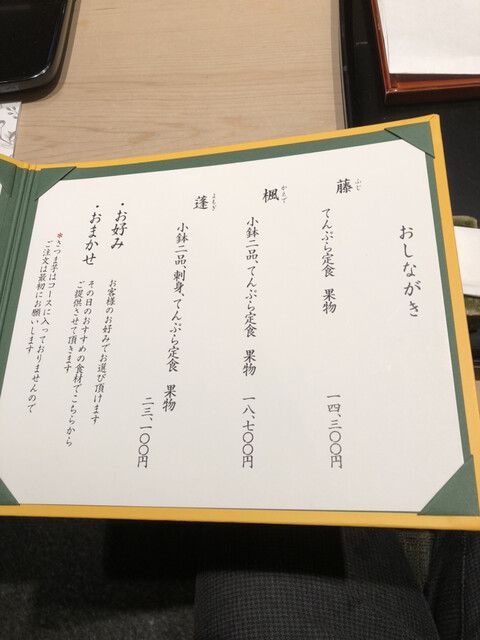 おしながき
藤
ふじ
てんぷら定食　果物
一四、三〇〇円
楓
かえで
小鉢二品、てんぷら定食　果物
一八、七〇〇円
蓬
よもぎ
小鉢二品、刺身、てんぷら定食　果物
二三、一〇〇円
・お好み
お客様のお好みでお選び頂けます
・おまかせ
その日のおすすめの食材でこちらから
ご提供させて頂きます
*さつま芋はコースに入っておりませんので
ご注文は最初にお願いします